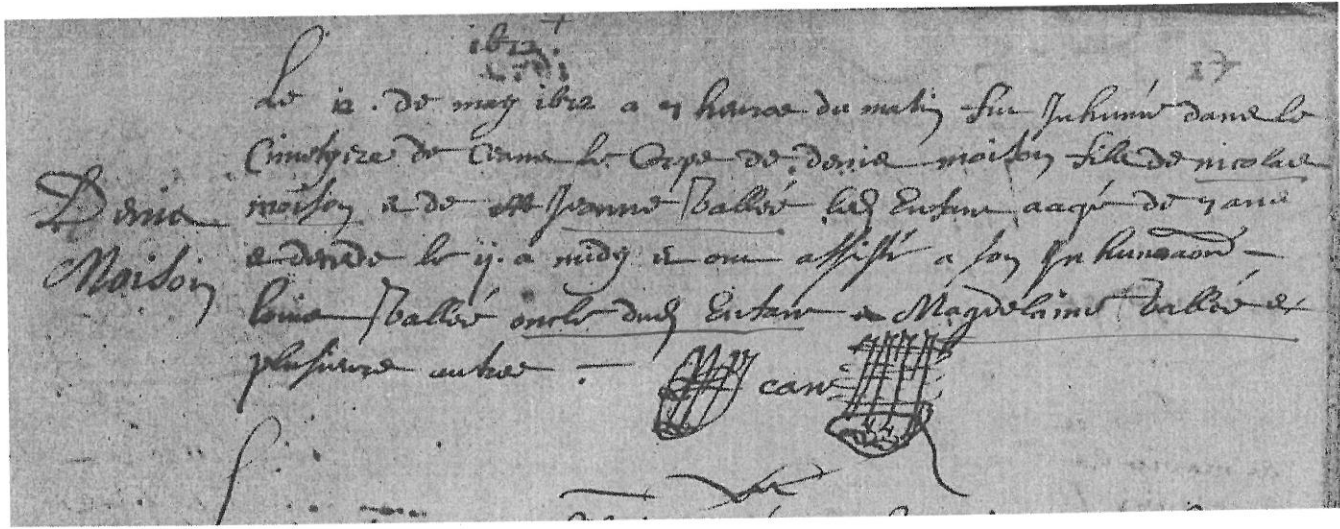 1672
17
Le 12. de may 1672 a 7 heures du matin fut Inhumé dans le
Cimetyere de Crans le Corps de denis moison fils de nicolas
Denis
moison et de Jeanne Vallée led Enfant aagé de 7 ans
Moison
et decedé le ij. a midy et ont assisté a son Inhumaōn
louis Vallée oncle dud Enfant et Magdelaine Vallée et
plusieurs autres